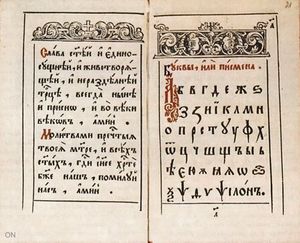 Слава ст҃ѣй и едино-
сꙋщнѣй, и животворѧ-
щей, и нераздѣлнѣй
трⷪ҇цѣ, всегда нн҃ѣ
и приснѡ, и во вѣки
вѣкѡвъ, аминь.
Молитвами пречⷭ҇тыѧ
твоеѧ мт҃ре, и всѣхъ
ст҃ыхъ, гдⷭ҇и іи҃се хрⷭ҇те
бж҃е нашъ, помилꙋй
насъ, аминь.
Бꙋквы, или писмена.
А в г д е ж ѕ
з и і к л м н
о п р с т ꙋ ф х
ц ч ш щ ъ ы ь
ѣ ю ѧ ѡ
ѯ ѱ ѳ ѵ
ON